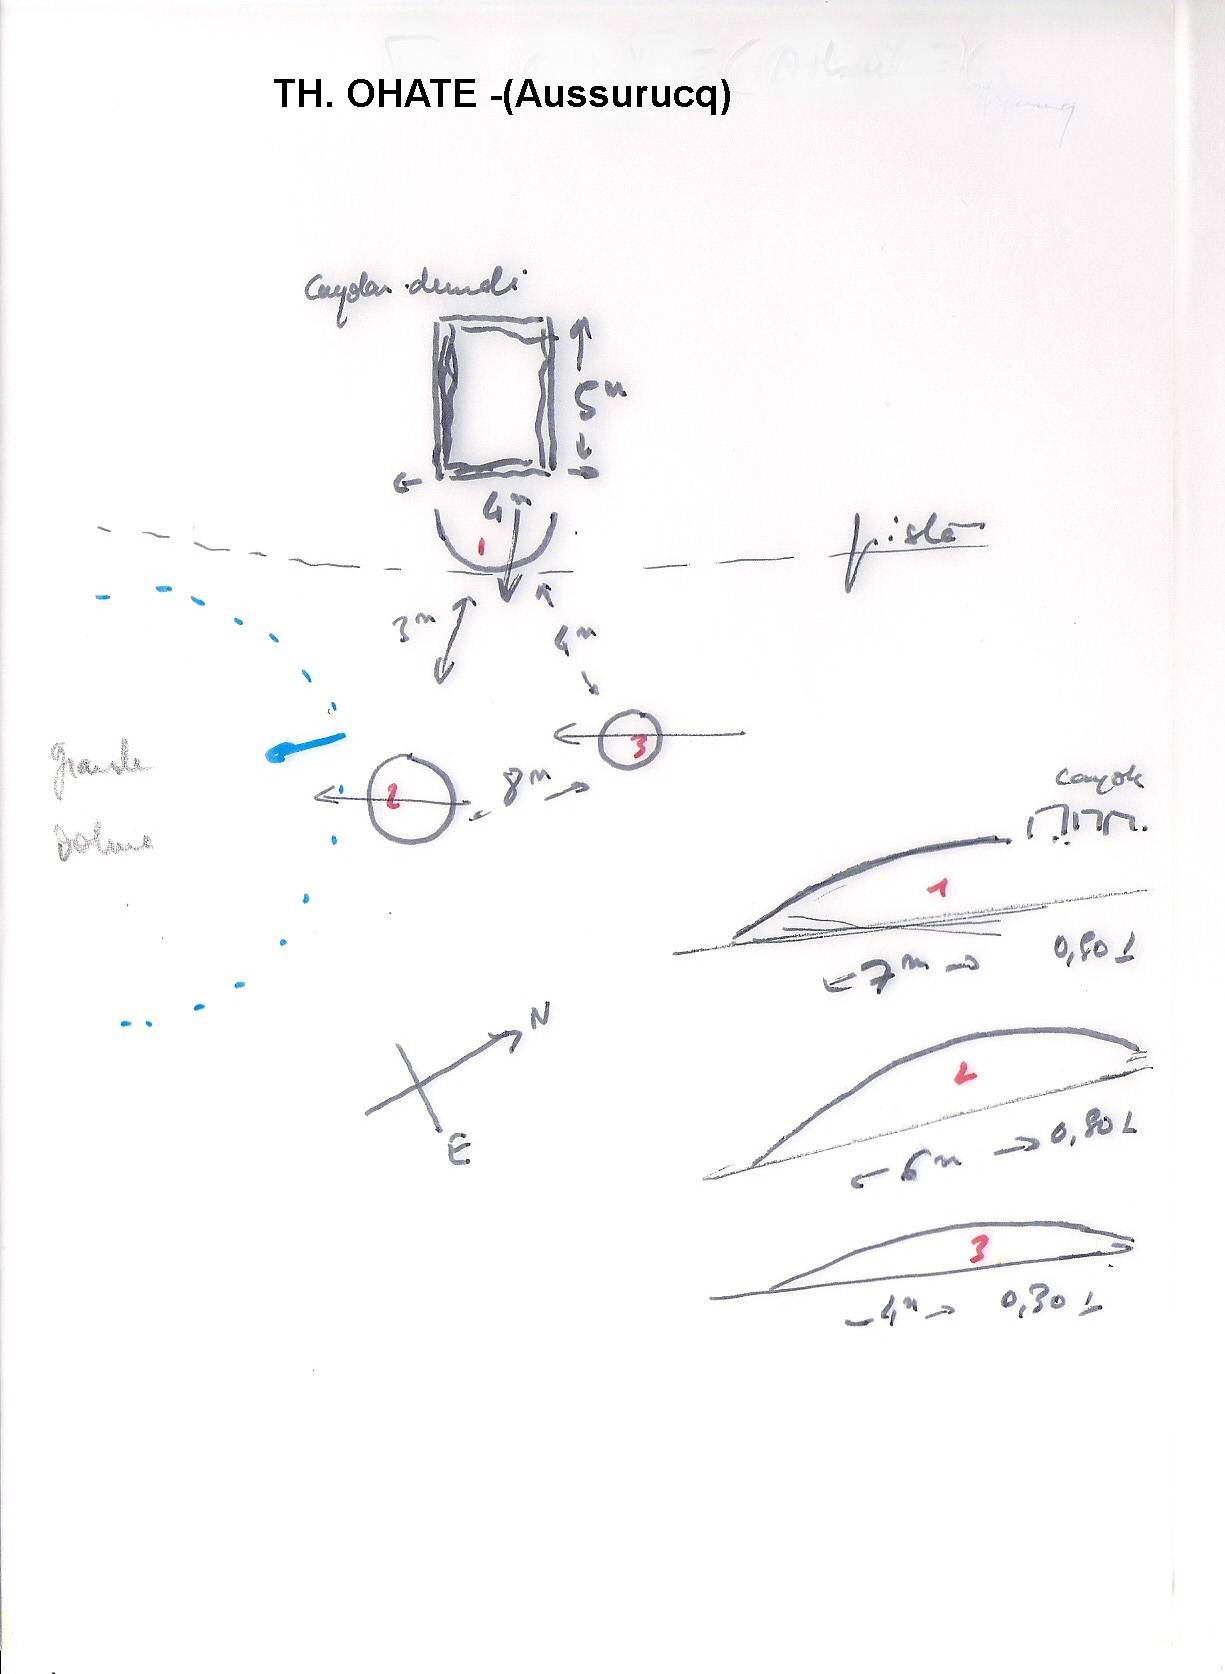 TH. OHATE -(Aussurucq)
Cayolar demoli
5m
4m
1
piste
3m
4m
3
grande
doline
2
8m
cayol
1
7m
0,80
N
E
2
6m
0,80
3
4m
0,30